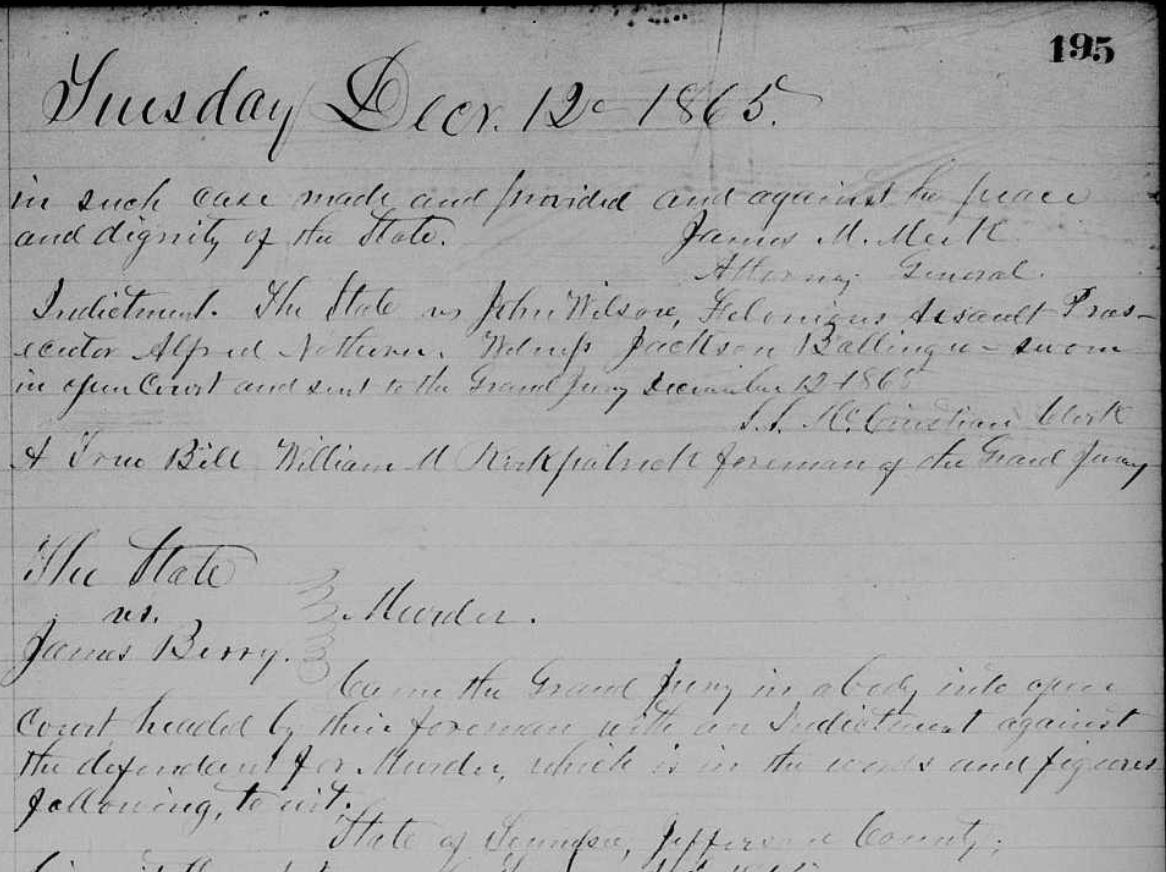 195
Tuesday Decr. 12 1865.
in such case made and provided and against the peace
and dignity of the State. James M. Meek
Attorney General.
Indictment. The State vs John Wilson, Felonious Assault Pros-
ecutor Alfred Witness Jackson Ballinger - sworn
in open Court and sent to the Grand Jury December 12 1865
Clerk
A True Bill William M Kirkpatrick foreman of the Grand Jury
The State
vs. Murder.
James Berry.
Came the Grand Jury in a body into open
Court headed by their foreman with an Indictment against
the defendant for Murder, which is in the words and figures
following, to wit.
State of Tennessee, Jefferson County,